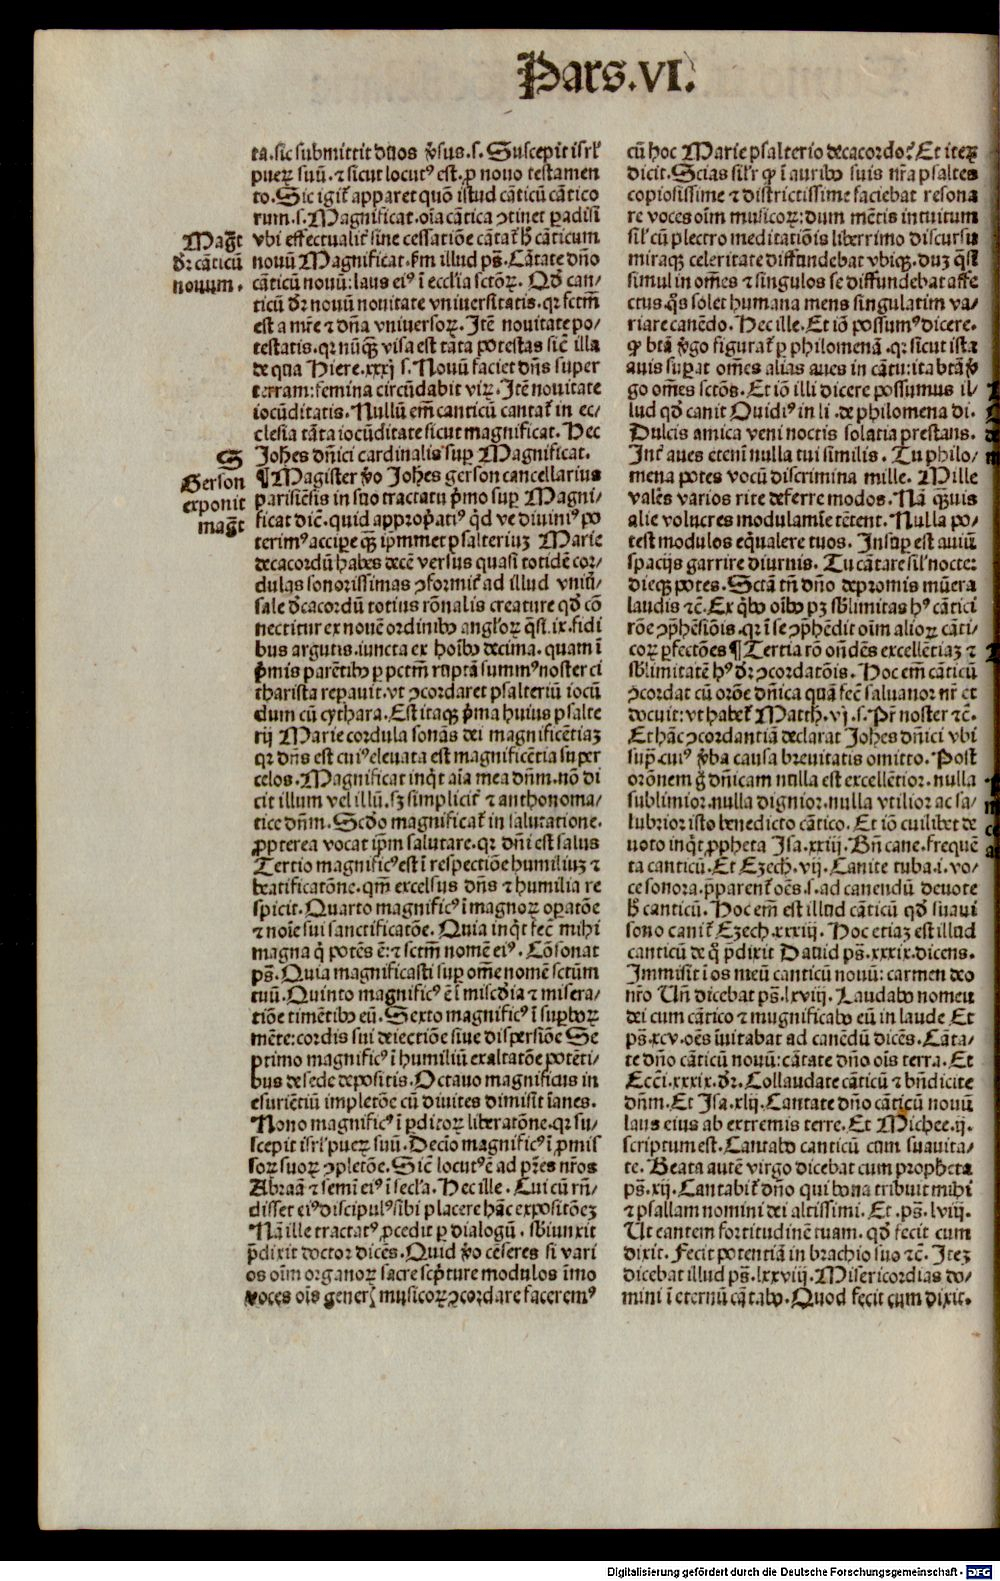 Pars.VI.
ta.sic submittit duos ꝟsus.s. Suscepit isrl'
pueꝝ suū. ⁊ sicut locutꝰ est. ꝓ nouo testamen
to. Sic igit᷑ apparet quō istud cāticū cātico
rum.s. Magnificat. oīa cātica ꝯtinet ꝑadisi
vbi effectualit᷑ sine cessatiōe cātat᷑ h̄ canticum
nouū Magnificat. ẜm illud ps̄. Cātate dn̄o
cāticū nouū: laus eiꝰ ī ecclīa sctōꝝ. Qđ can/
ticū dr̄ nouū nouitate vniuersitatis. qꝛ fctm̄
est a mr̄e ⁊ dn̄a vniuersoꝝ. Itē nouitate po/
testatis. qꝛ nūqᷓ visa est tāta potestas sic̄ illa
de qua Hiere. xxxj s. Nouū faciet dn̄s super
terram: femina circūdabit viꝝ. Itē nouitate
iocūditatis. Nullū em̄ canticū cantat᷑ in ec/
clesia tāta iocūditate sicut magnificat. Hec
Joh̄es dn̄ici cardinalis suꝑ Magnificat.
¶ Magister ꝟo Joh̄es gerson cancellarius
parisiēsis in suo tractatu pͥmo suꝑ Magni/
ficat dic̄. quid appropͥatiꝰ qͥd ve diuiniꝰ po
terimꝰ accipere qᷓ ip̄mmet psalteriuꝫ Marie
decacordū habēs decē versus quasi totidē cor/
dulas sonorissimas ꝯformit᷑ ad illud vniū/
sale đcacordū totius rōnalis creature qđ cō
nectitur ex nouē ordinibꝰ angl'oꝝ qͣsi.ix.fidi
bus argutis. iuncta ex hoībꝰ decima. quam ī
pͥmis parētibꝰ ꝑ pctm̄ ruptā summꝰ noster ci
tharista reparauit. vt ꝯcordaret psalteriū iocū
dum cū cythara. Est itaqꝫ pͥma huius psalte
rij Marie cordula sonās dei magnificētiaꝫ
qꝛ dn̄s est cuiꝰ eleuata est magnificētia super
celos. Magnificat inqͥt aīa mea dn̄m. nō di
cit illum vel illū. sꝫ simplicit᷑ ⁊ anthonoma/
tice dn̄m. Scđo magnificat᷑ in salutatione.
ꝓpterea vocat ip̄m salutare. qꝛ dn̄i est salus
Tertio magnificꝰ est ī respectiōe humiliuꝫ ⁊
beatificatōne. qm̄ excelsus dn̄s ⁊ humilia re
spicit. Quarto magnificꝰ ī magnoꝝ oꝑatōe
⁊ noīe sui sanctificatōe. Quia inqͥt fec̄ mihi
magna qͥ potēs ē: ⁊ sctm̄ nomē eiꝰ. Cōsonat
ps̄. Quia magnificasti suꝑ om̄e nomē sctūm
tuū. Quinto magnificꝰ ē ī misc̄đia ⁊ misera/
tiōe timētibꝰ eū. Sexto magnificꝰ ī suꝑboꝝ
mēte: cordis sui deiectiōe siue dispersiōe Se
ptimo magnificꝰ ī humiliū exaltatōe potēti/
bus de sede depositis. Octauo magnificus in
esuriētiū impletōe cū diuites dimisit īanes.
Nono magnificꝰ ī ꝑditoꝝ liberatōne. qꝛ su/
scepit isrl' pueꝝ suū. Decīo magnificꝰ ī ꝓmis
soꝝ suoꝝ ꝯpletōe. Sic̄ locutꝰ ē ad pr̄es nr̄os
Abraā ⁊ semī eiꝰ ī secl'a. Hec ille. Cui cū rn̄/
disset eiꝰ discipulꝰ sibi placere hāc expositōeꝫ
Nā ille tractatꝰ ꝓcedit ꝑ dialogū. sbiunxit
p̄dixit doctor dicēs. Quid ꝟo cēseres si vari
os oīm organoꝝ sacre scpͥture modulos īmo
voces oīs generꝭ musicoꝝ ꝯcordare faceremꝰ
Magt̄
dr̄ cāticū
nouum.
S
Gerson
exponit
magt̄
cū hoc Marie psalterio decacordo? Et iteꝝ
dicit. Scias sil'r ꝙ ī auribꝰ suis nr̄a psaltes
copiosissime ⁊ districtissime faciebat resona
re voces oīm musicoꝝ: dum mētis intuitum
sil' cū plectro meditatiōis liberrimo discursu
miraqꝫ celeritate diffundebat vbiqꝫ. duꝫ qͣsi
simul in om̄es ⁊ singulos se diffundebat affe
ctus qͦs solet humana mens singulatim va/
riare canēdo. Hec ille. Et iō possumꝰ dicere.
ꝙ btā ꝟgo figurat᷑ ꝑ philomenā. qꝛ sicut ista
auis suꝑat om̄es alias aues in cātu: ita btā ꝟ
go om̄es sctōs. Et iō illi dicere possumus il/
lud qđ canit Ouidiꝰ in li. de philomena di.
Dulcis amica veni noctis solatia prestans.
Int᷑ aues etenī nulla tui similis. Tu philo/
mena potes vocū discrimina mille. Mille
valēs varios rite deferre modos. Nā qᷓuis
alie volucres modulamīe tētent. Nulla po/
test modulos eqͥualere tuos. Insuꝑ est auiū
spacijs garrire diurnis. Tu cātare sil' nocte:
dieqꝫ potes. Sctā tn̄ dn̄o depromis mūera
laudis ⁊c̄. Ex qͥbꝰ oībꝰ pꝫ sb̄limitas hꝰ cātici
rōe ꝯp̄hēsiōis. qꝛ ī se ꝯp̄hēdit oīm alioꝝ cāti/
coꝝ ꝑfectōes ¶ Tertia rō on̄dēs excellētiaꝫ ⁊
sb̄limitatē hꝰ dr̄ ꝯcordatōis. Hoc em̄ cāticū
ꝯcordat cū orōe dn̄ica quā fec̄ saluanor nr̄ et
docuit: vt habet᷑ Matth. vj. s. Pr̄ noster ⁊c̄.
Et hāc ꝯcordantiā declarat Joh̄es dn̄ici vbi
supͣ. cuiꝰ ꝟba causa breuitatis omitto. Post
orōnem gͦ dn̄icam nulla est excellētior. nulla
sublimior. nulla dignior. nulla vtilior ac sa/
lubrior isto benedicto cātico. Et iō cuilibet de
uoto inqͥt ꝓpheta Isa. xxiij. Bn̄ cane. frequē
ta canticū. Et Ezech. vij. Canite tuba.i. vo/
ce sonora. p̄parent᷑ oēs.s. ad canendū deuote
h̄ canticū. Hoc em̄ est illud cāticū qđ suaui
sono canit᷑ Ezech. xxxiij. Hoc etiaꝫ est illud
canticū de qͦ p̄dixit Dauid ps̄. xxxix. dicens.
Immisit ī os meū canticū nouū: carmen deo
nr̄o Un̄ dicebat ps̄. lxviij. Laudabo nomeu
dei cum cātico ⁊ mugnificabo eū in laude Et
ps̄. xcv. oēs īuitabat ad canēdū dicēs. Cāta/
te dn̄o cāticū nouū: cātate dn̄o oīs terra. Et
Ecci. xxxix. dr̄. Collaudate cāticū ⁊ bn̄dicite
dn̄m. Et Isa. xlij. Cantate dn̄o cāticū nouū
laus eius ab extremis terre. Et Michee. ij.
scriptum est. Cantabo canticū cum suauita/
te. Beata autē virgo dicebat cum propheta
ps̄. xij. Cantabit᷑ dn̄o qui bona tribuit mihi
⁊ psallam nomini dei altissimi. Et. ps̄. lviij.
Ut eantem fortitudinē tuam. qđ fecit cum
dixit. Fecit potentiā in brachio suo ⁊c̄. Iteꝫ
dicebat illud ps̄. lxxviij. Misericordias do/
mini ī eternū cātabo. Quod fecit cum dixit.
Digitalisierung gefördert durch die Deutsche Forschungsgemeinschaft - DFG